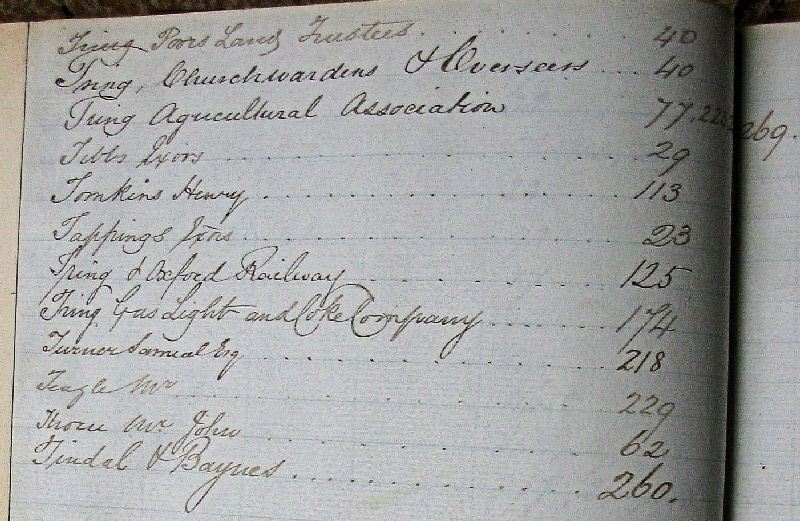 Tring Poors Land Trustees 40
Tring, Churchwardens & Overseers 40
Tring Agricultural Association 77.223.269.
Tibbs Exors 29
Tomkins Henry 113
Tappings Exors 23
Tring & Oxford Railway 125
Tring Gas Light and Coke Company 174
Turner Samuel Esq 218
Teagle Mr 229
Mr John 62
Tindal & Baynes 260.